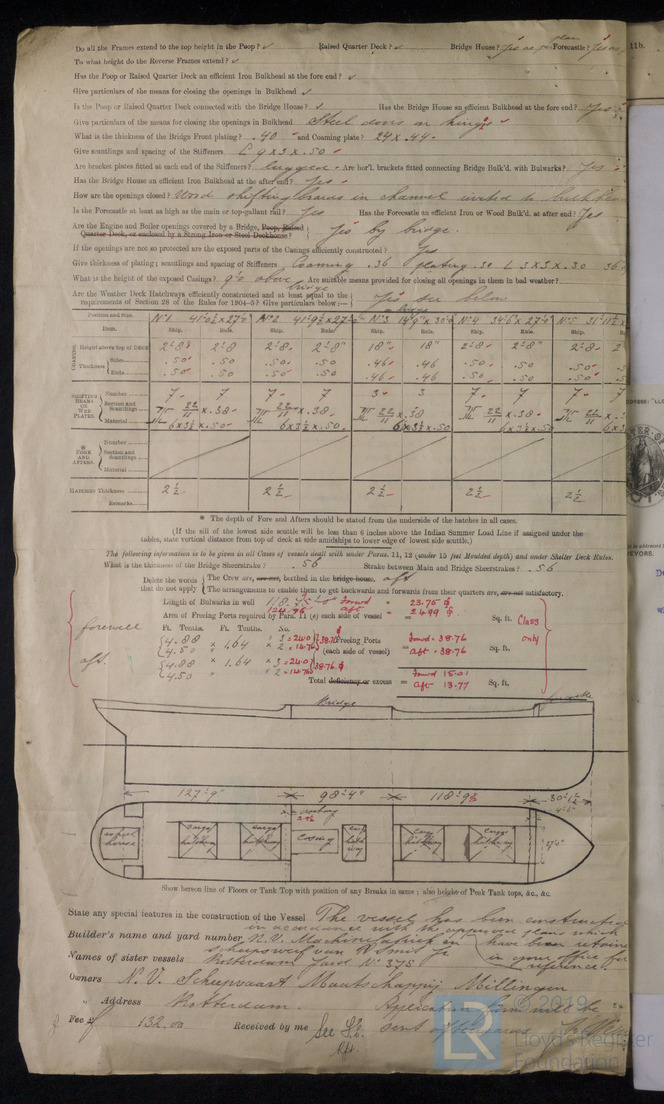 Do all the Frames extend to the top height in the Poop? ✓ Raised Quarter Deck? ✓ Bridge House? Yes as per plan Forecastle? Yes as
11b.
To what height do the Reverse Frames extend? ✓
Has the Poop or Raised Quarter Deck an efficient Iron Bulkhead at the fore end? ✓
Give particulars of the means for closing the openings in Bulkhead ✓
Is the Poop or Raised Quarter Deck connected with the Bridge House? ✓ Has the Bridge House an efficient Bulkhead at the fore end? Yes
Give particulars of the means for closing the openings in Bulkhead Steel doors on hinges
What is the thickness of the Bridge Front plating? .40 and Coaming plate? 24 x .44
Give scantlings and spacing of the Stiffeners L 9 x 3 x .50
Are bracket plates fitted at each end of the Stiffeners? lugged Are hor'l. brackets fitted connecting Bridge Bulk'd. with Bulwarks? Yes
Has the Bridge House an efficient Iron Bulkhead at the after end? Yes
How are the openings closed? Wood shifting boards in channel riveted to bulkhead
Is the Forecastle at least as high as the main or top-gallant rail? Yes Has the Forecastle an efficient Iron or Wood Bulk'd. at after end? Yes
Are the Engine and Boiler openings covered by a Bridge, Poop, Raised
Quarter Deck, or enclosed by a Strong Iron or Steel Deckhouse? Yes by bridge.
If the openings are not so protected are the exposed parts of the Casings efficiently constructed? Yes
Give thickness of plating; scantlings and spacing of Stiffeners Coaming .36 plating .30 L 3 x 3 x .30 36
What is the height of the exposed Casings? 9'0 above bridge Are suitable means provided for closing all openings in them in bad weather?
Are the Weather Deck Hatchways efficiently constructed and at least equal to the
requirements of Section 28 of the Rules for 1904-5? Give particulars below:— Yes see below
Position and Size. No 1 No 2 No 3 bridge No 4 34'6 x 27'0 No 5
Item. Ship. Rule. Ship. Rule. Ship. Rule. Ship. Rule. Ship.
COAMING Height above top of DECK 2'-8" 2'-8 2'-8 2'-8" 18" 18" 2'-8 2'-8" 2'-8 2
Thickness Sides .50 .50 .50 .50 .46 .46 .50 .50 .50
Ends .50 .50 .50 .50 .46 .46 .50 .50 .50
SHIFTING BEAMS OR WEB PLATES. Number 7 7 7 7 3 3 7 7 7
Section and Scantlings 22/11 x .38 22/11 x .38 22/11 x .38 22/11 x .38 22/11 x
Material 6 x 3½ x .50 6 x 3½ x .50 6 x 3½ x .50 6 x 3½ x .50 6 x 3
* FORE AND AFTERS. Number
Section and Scantlings
Material
HATCHES Thickness 2½ 2½ 2½ 2½ 2½
Remarks
* The depth of Fore and Afters should be stated from the underside of the hatches in all cases.
(If the sill of the lowest side scuttle will be less than 6 inches above the Indian Summer Load Line if assigned under the
tables, state vertical distance from top of deck at side amidships to lower edge of lowest side scuttle.)
The following information is to be given in all Cases of vessels dealt with under Paras. 11, 12 (under 15 feet Moulded depth) and under Shelter Deck Rules.
What is the thickness of the Bridge Sheerstrake? .56 Strake between Main and Bridge Sheerstrakes? .56
Delete the words that do not apply
The Crew are, are not, berthed in the bridge house. aft
The arrangements to enable them to get backwards and forwards from their quarters are, are not satisfactory.
Length of Bulwarks in well 118.75 forwd 23.75
124.96 aft 24.99
Area of Freeing Ports required by Para. 11 (e) each side of vessel = Sq. ft. Class only
Ft. Tenths. Ft. Tenths. No.
forewell 4.88 x 1.64 x 3 = 24.0
4.50 x 2 = 14.76 38.76 Freeing Ports forwd = 38.76
(each side of vessel) = aft = 38.76 Sq. ft.
aft. 4.88 x 1.64 x 3 = 24.0
4.50 x 2 = 14.76 38.76
Total deficiency or excess = forwd 15.01
aft 13.77 Sq. ft.
Bridge
127'-9" 98'-4" 118'-9 30'-1½
cargo hatchway cargo hatchway casing cargo hatchway cargo hatchway
Show hereon line of Floors or Tank Top with position of any Breaks in same; also height of Peak Tank tops, &c., &c.
State any special features in the construction of the Vessel The vessel has been constructed
in accordance with the approved plans which
Builder's name and yard number N.V. Machinefabriek en have been retained
scheepswerf van P. Smit Jr in your office for
Names of sister vessels Rotterdam Yard No 375 reference.
Owners N.V. Scheepvaart Maatschappij Millingen
" Address Rotterdam. Application form will be
Fee £ f 132.00 Received by me See sent
© 2019
LR
Lloyd's Register
Foundation